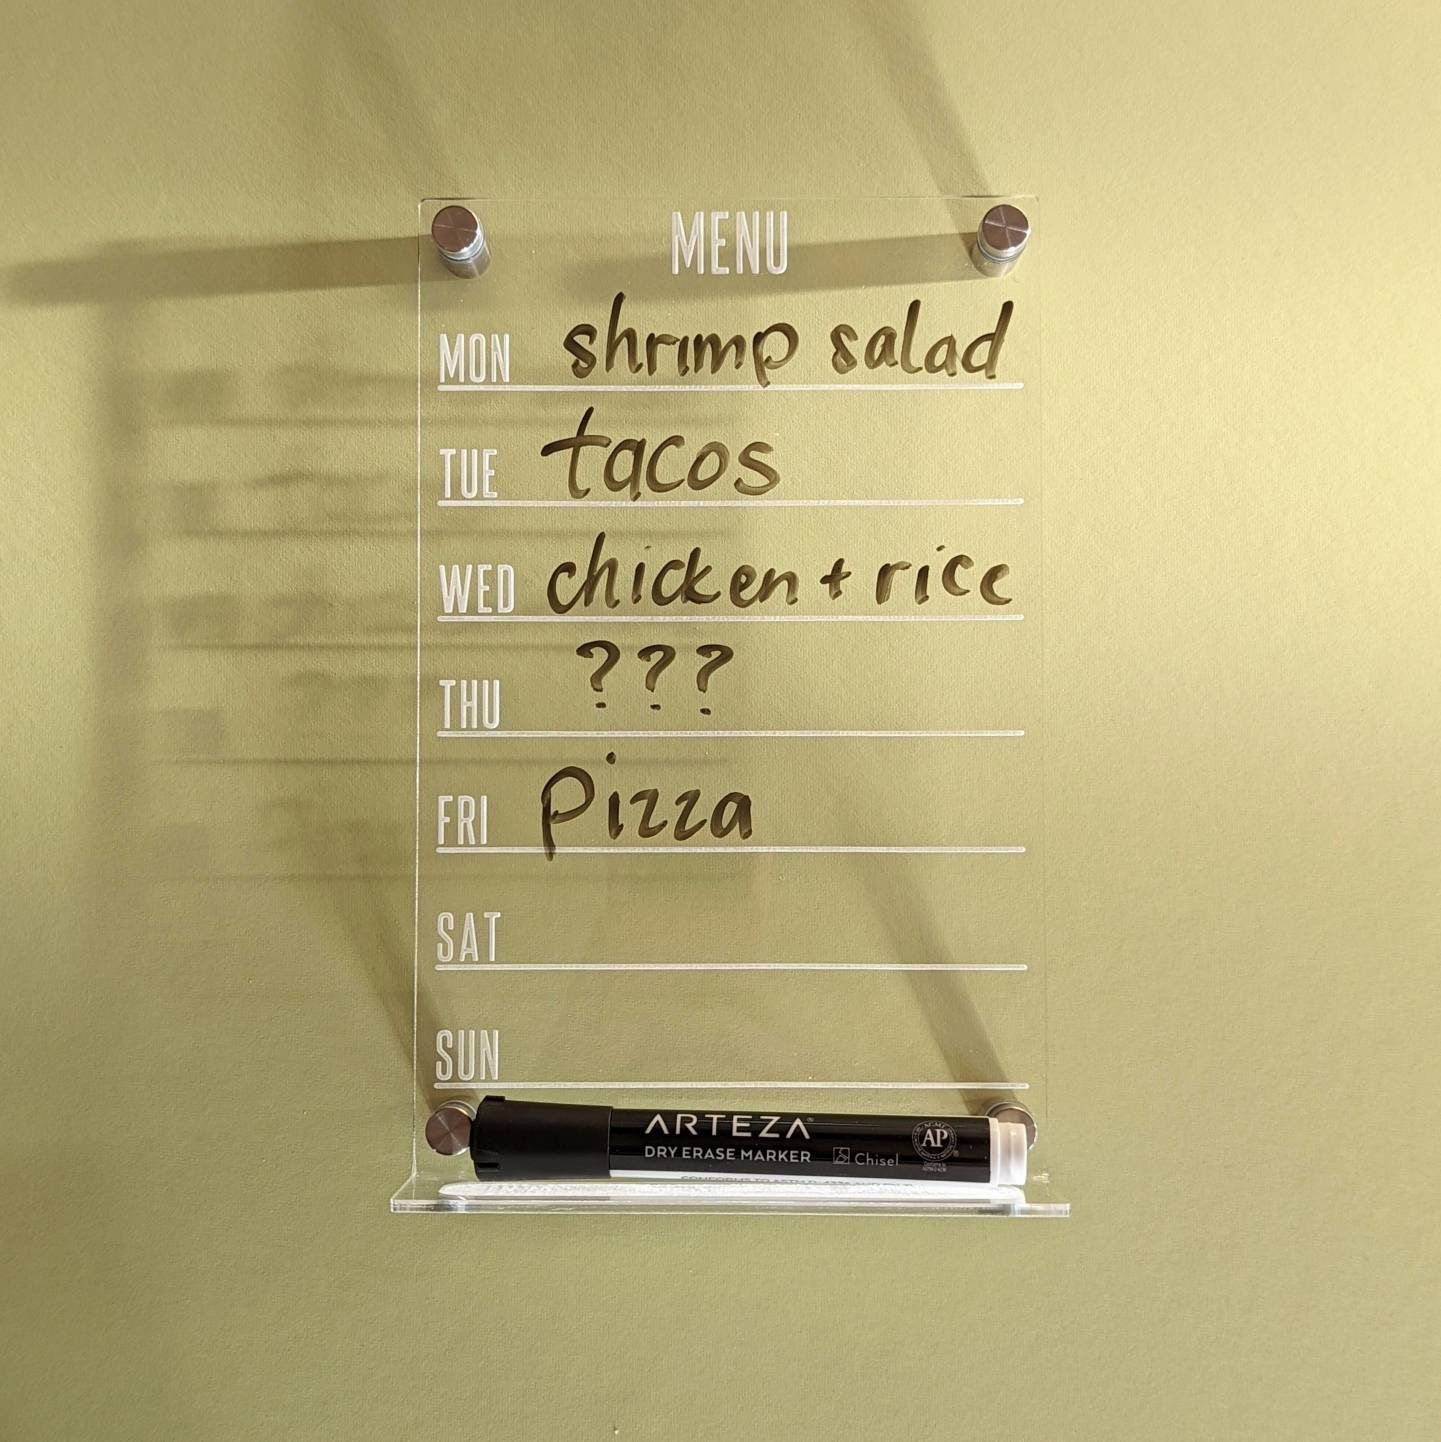 MENU
MON shrimp salad
TUE tacos
WED chicken + rice
THU ???
FRI pizza
SAT
SUN
ARTEZA®
DRY ERASE MARKER Chisel
AP